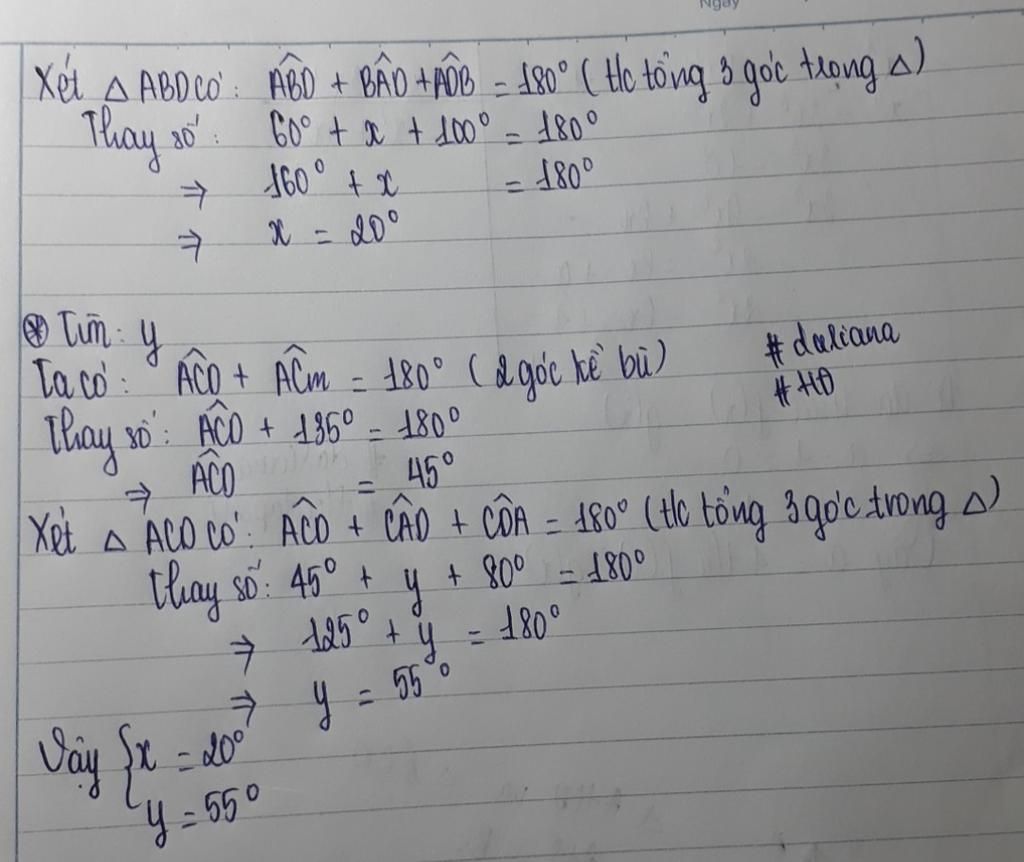 Ngày
Xét △ ABD có: ABD̂ + BAD̂ + ADB̂ = 180° (t/c tổng 3 góc trong △)
Thay số: 60° + x + 100° = 180°
⇒ 160° + x = 180°
⇒ x = 20°
⊛ Tìm: y
Ta có: ACD̂ + ACm̂ = 180° (2 góc kề bù)
# daliana
# HĐ
Thay số: ACD̂ + 135° = 180°
⇒ ACD̂ = 45°
Xét △ ACD có: ACD̂ + CAD̂ + CDÂ = 180° (t/c tổng 3 góc trong △)
Thay số: 45° + y + 80° = 180°
⇒ 125° + y = 180°
⇒ y = 55°
Vậy { x = 20°
y = 55°